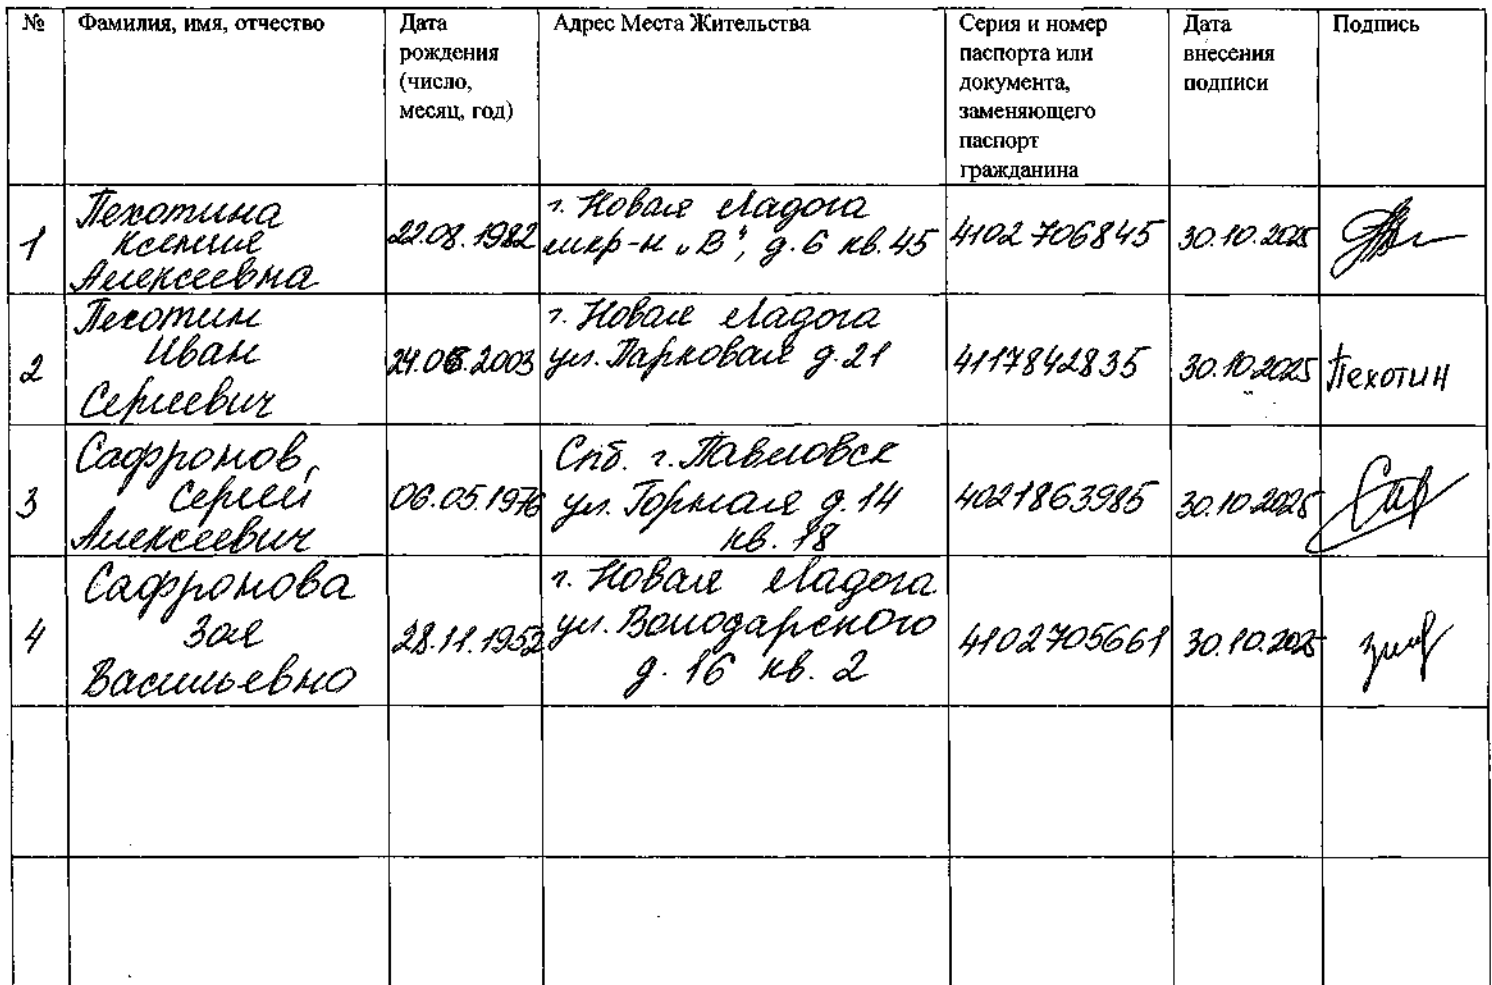 № Фамилия, имя, отчество Дата рождения (число, месяц, год) Адрес Места Жительства Серия и номер паспорта или документа, заменяющего паспорт гражданина Дата внесения подписи Подпись
1 Пехотина Ксения Алексеевна 22.08.1982 г. Новая Ладога мкр-н „В“, д. 6 кв. 45 4102 706845 30.10.2025
2 Пехотин Иван Сергеевич 24.08.2003 г. Новая Ладога ул. Парковая д. 21 4117842835 30.10.2025 Пехотин
3 Сафронов Сергей Алексеевич 06.05.1976 Спб. г. Павловск ул. Горная д. 14 кв. 18 4021863985 30.10.2025
4 Сафронова Зоя Васильевна 28.11.1952 г. Новая Ладога ул. Володарского д. 16 кв. 2 4102705661 30.10.2025